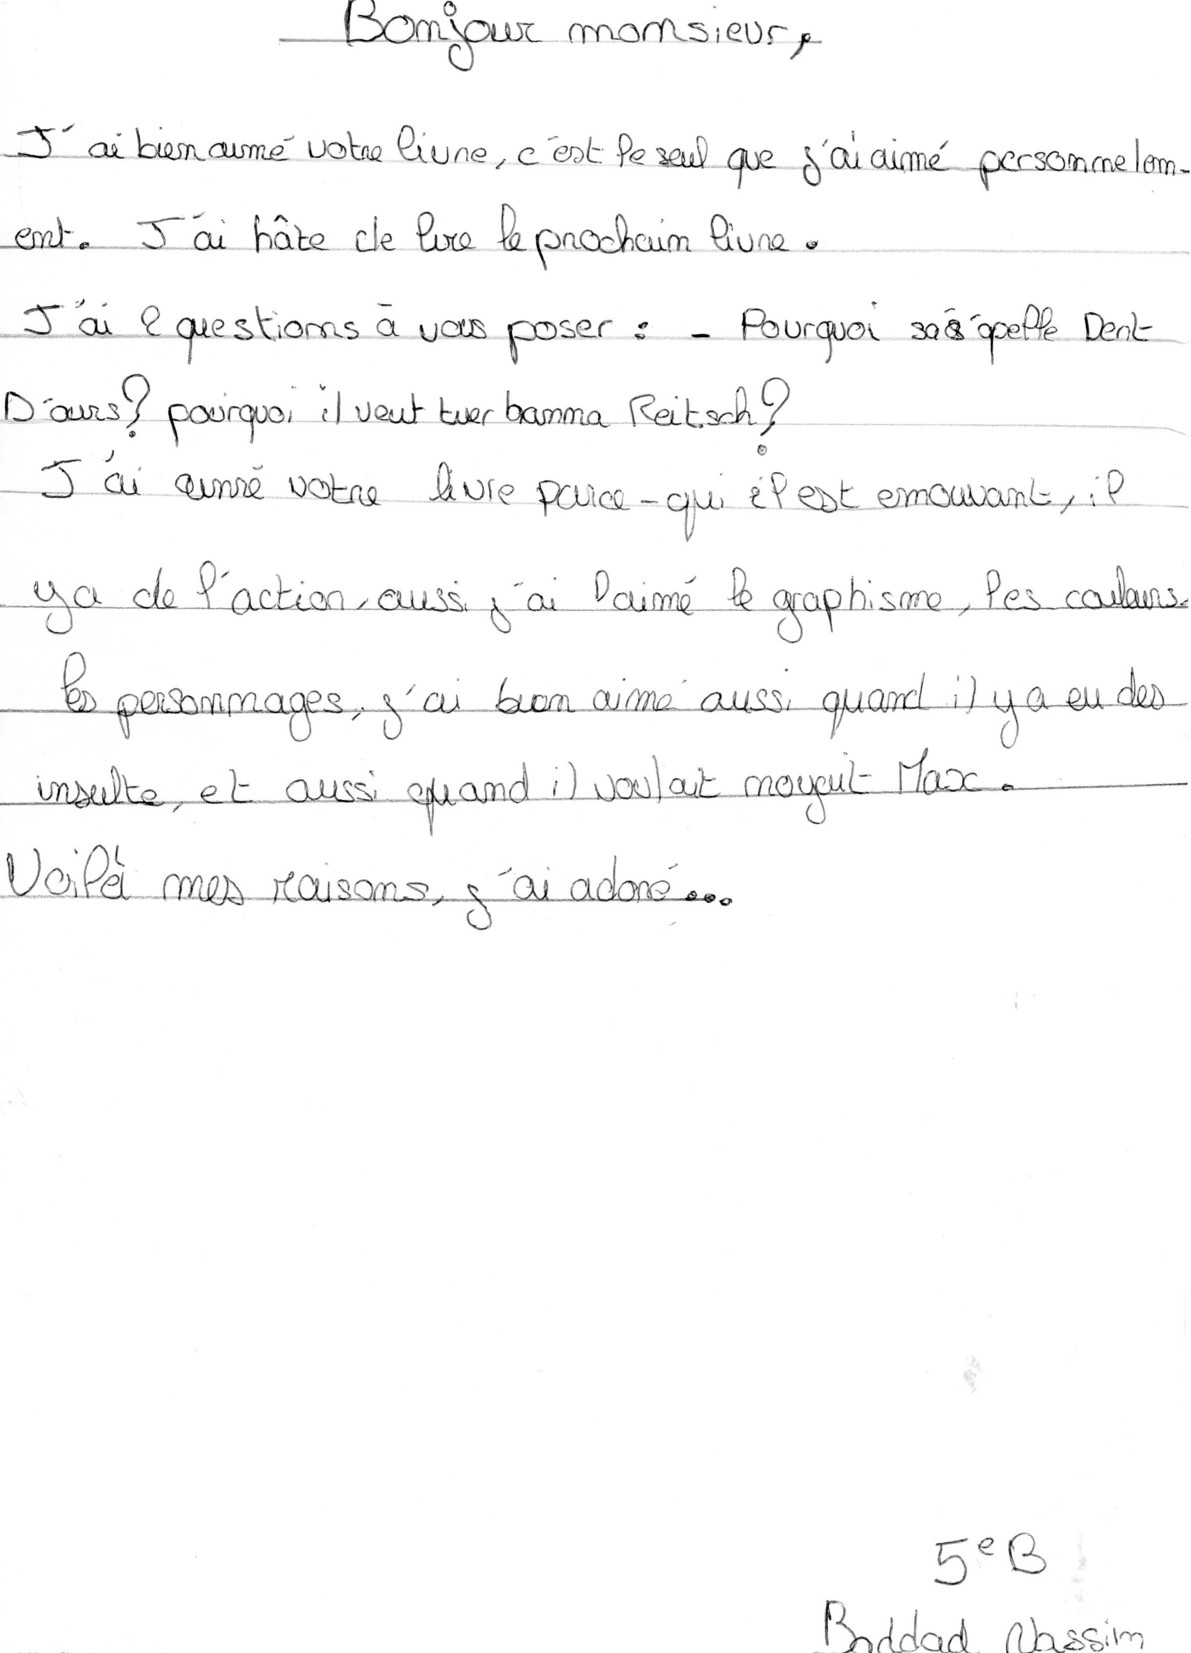 Bonjour monsieur,
J'ai bien aimé votre livre, c'est le seul que j'ai aimé personnelem-
ent. J'ai hâte de lire le prochain livre.
J'ai 2 questions à vous poser : - Pourquoi sa s'apelle Dent
D'ours? pourquoi il veut tuer hanna Reitsch?
J'ai aimé votre livre parce-qui il est emouvant, il
ya de l'action, aussi j'ai aimé le graphisme, les couleurs.
les personnages, j'ai bien aimé aussi quand il y a eu des
insulte, et aussi quand il voulait Max.
Voilà mes raisons, j'ai adoré...
5e B
Nassim